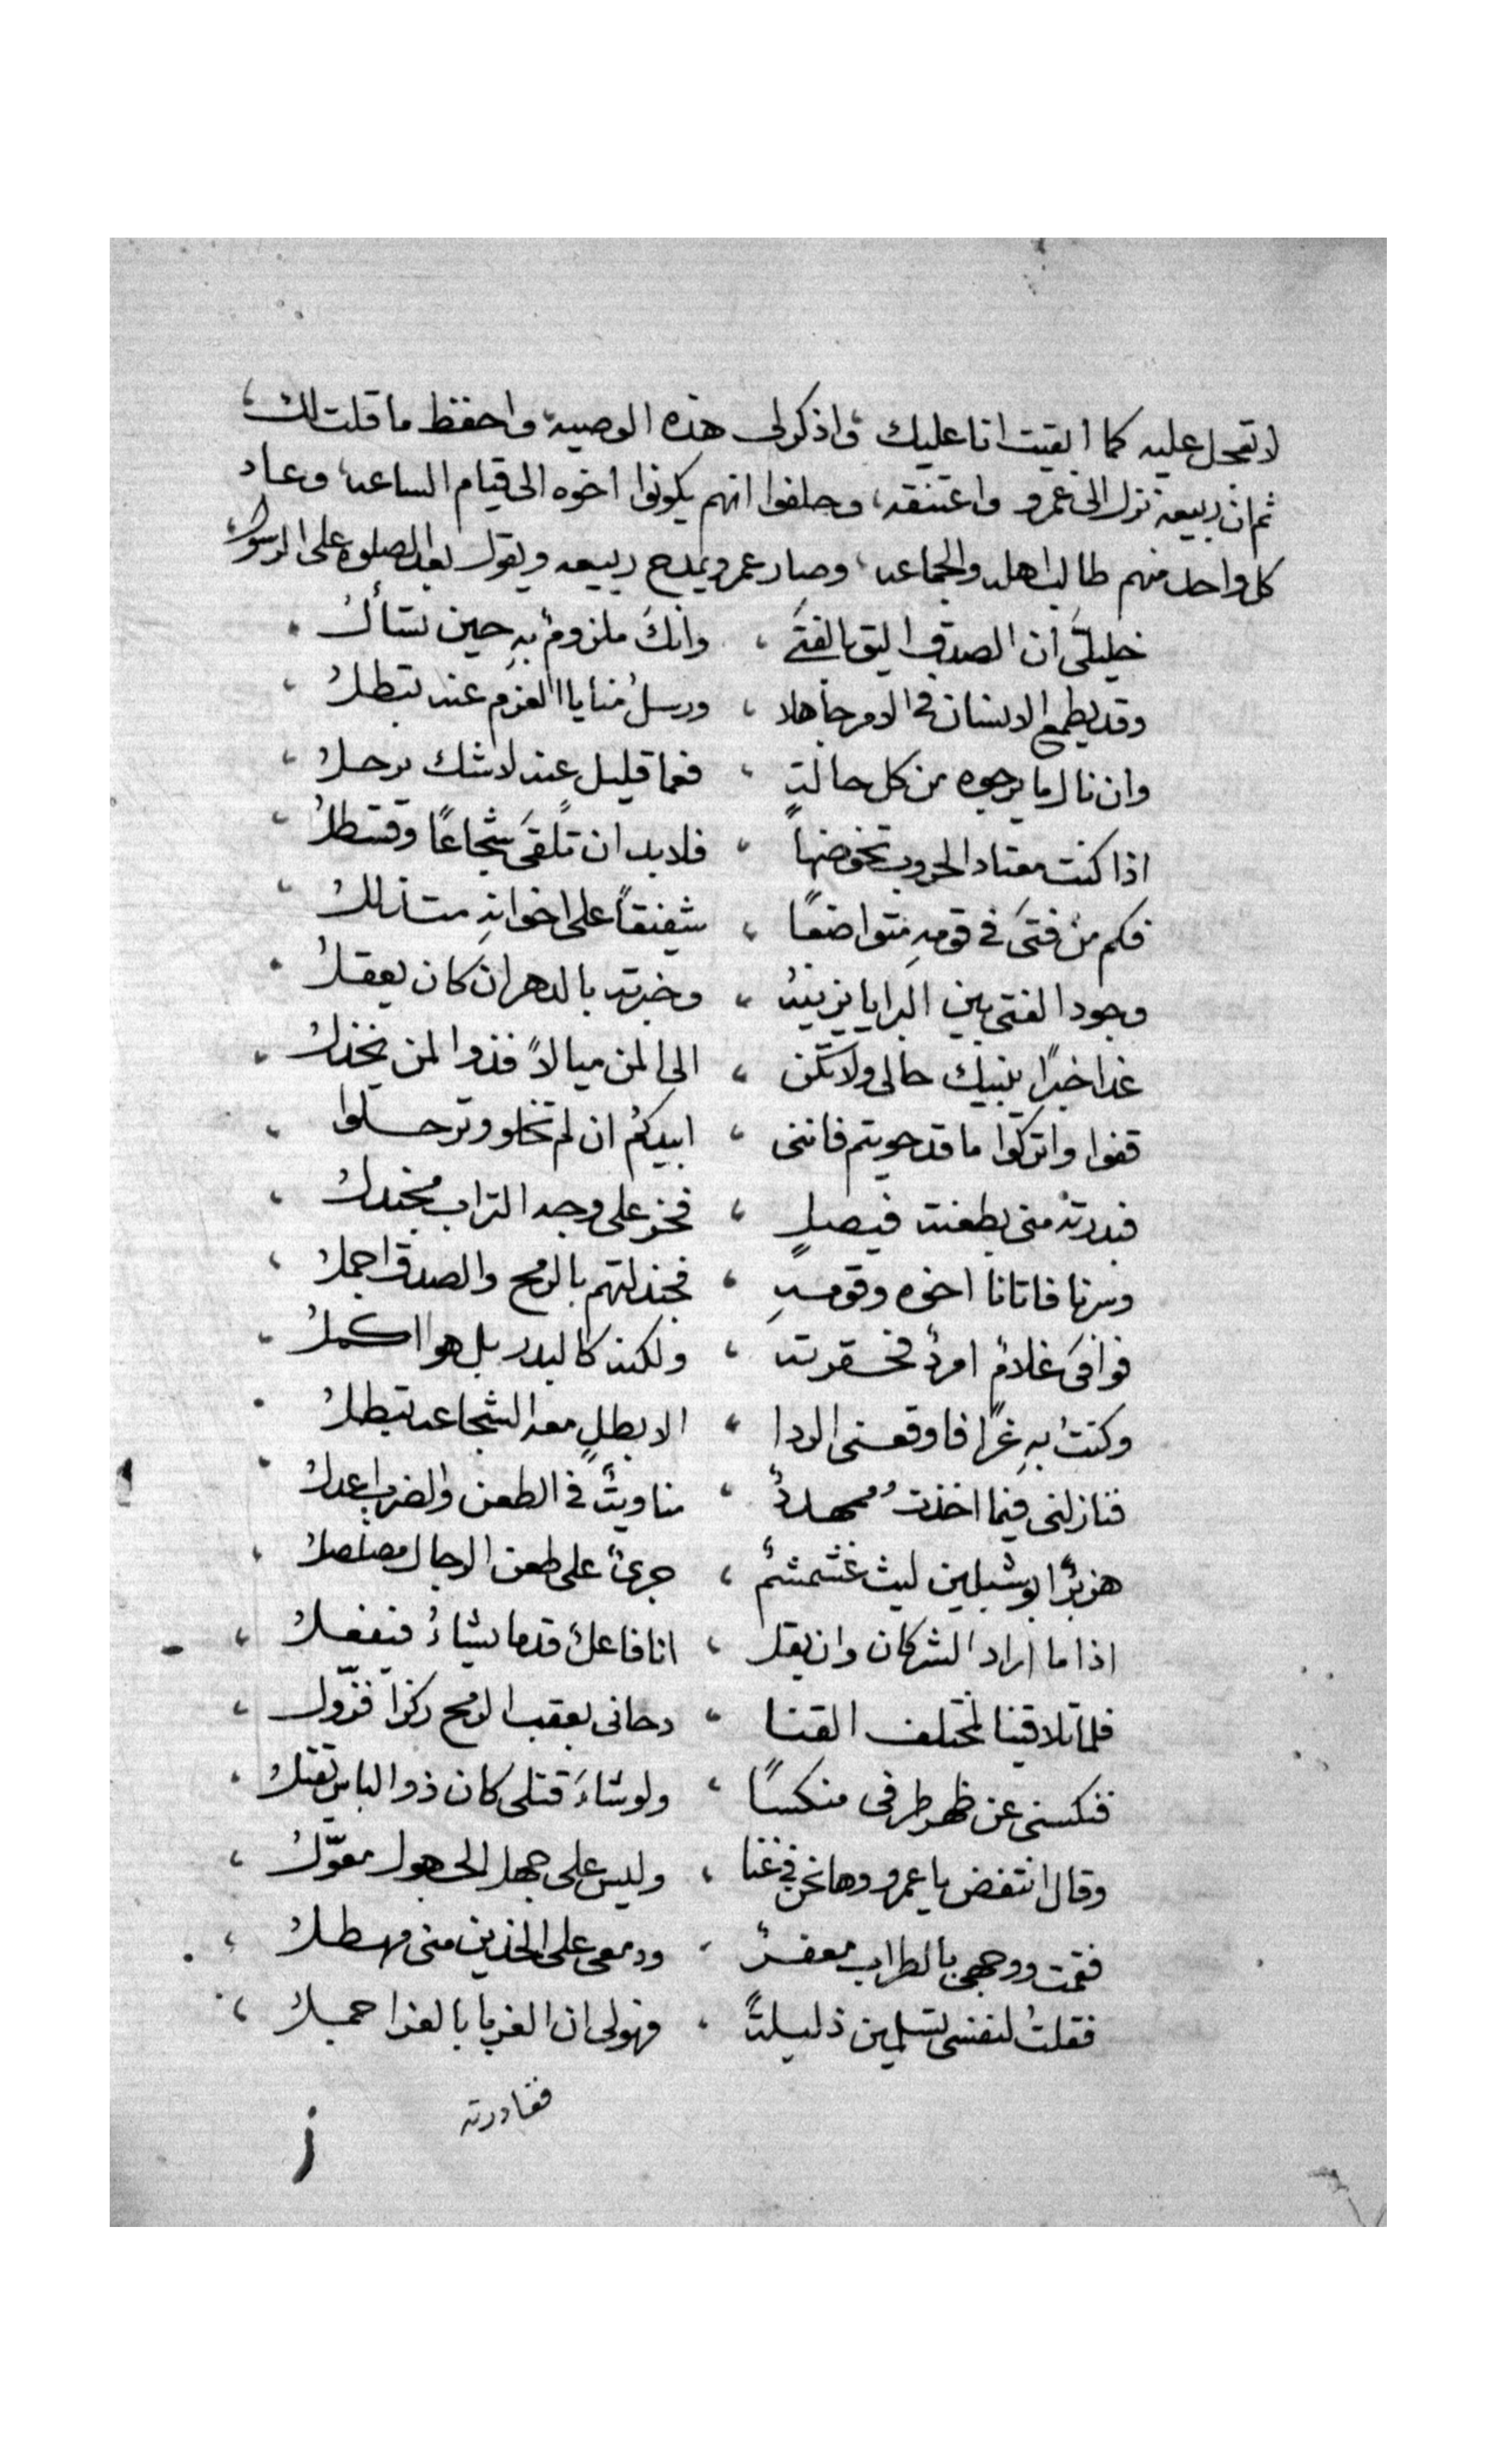 لا تعجل عليه كما ابقيت انا عليك، واذكر لى هذه الوصيه، واحفظ ما قلت لك،
ثم ان ربيعه نزل الى عمرو واعتنقه، وحلفوا انهم يكونوا اخوه الى قيام الساعه، وعاد
كل واحد منهم طالب اهله والجماعه، وصار عمرو يمدح ربيعه ويقول بعد الصلوة على الرسول،
خليلىَّ ان الصدق اليق بالفتَى ، وانكَ ملزومٌ بهِ حين تسألُ
وقد يطمع الانسان فى الامر جاهلا ، ورسلُ منايا العزم عنه تبطلُ ،
وان نال ما يرجوه من كل حالةٍ ، فعما قليل عنه لا شك يرحلُ ،
اذا كنت معتاد الحروب تخوضهاً ، فلا بد ان تلقىَ شجاعًا وقسطلُ ،
فكم من فتىَ فى قومهِ متواضعًا ، شفيقاً على اخوانهِ متذللُ
وجود الفتى بين البرايا يزينهُ ، وخبرته بالدهر ان كان يعقلُ
غدا خبرًا ينبيك حالى ولا تكن ، الى المن ميالاً فذوا المن يخذلُ ،
قفوا واتركوا ما قد حويتم فاننى ، ابيدكُم ان لم تخلو وترحلوا ،
فبدرته منى بطعنت فيصلٍ ، فخر على وجه التراب مجندلُ ،
وسرنا فاتانا اخوه وقومهِ ، فجندلتهم بالرمح والصدق اجملُ ،
فوافىَ غلامٌ امردٌ فحقرته ، ولكنه كالبدر بل هو اكملُ ،
وكنتُ بهِ غرًا فاوقعنى الردا ، الا بطلٍ معه الشجاعه تبطلُ
فنازلنى فيما اخذتُ ممهدٌ ، مناويثٌ فى الطعن والضرب اعدلُ
هزبرٌ ابو شبلين ليث غشمشمٌ ، جرئٌ على طعن الرجال مصلصلُ ،
اذا ما اراد الشر كان وان يقل ، انا فاعلٌ قدما يشاءُ فيفعلُ ،
فلما تلاقينا لمختلف القنا ، دحانى بعقب الرمح ركزاً فزّول ،
فنكسنى عن ظهر طرفى منكسًا ، ولو شاءَ قتلى كان ذو الباس يقتلُ
وقال انتفض يا عمرو وها نحن فى غنا ، وليس على جهل الجهول معوّلُ ،
فقمت ووجهى بالطراب معفرٌ ، ودمعى على الخدين منى مهطلُ ،
فقلتُ لنفسى تسلمين ذليلةً ، فهولى ان الغربا بالعزا جميلُ ،
فغادرته